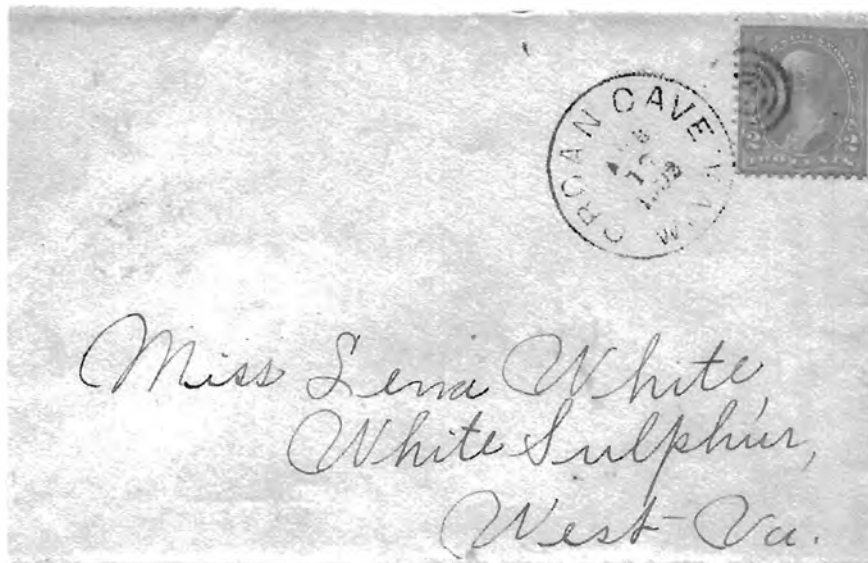 ORGAN CAVE W.VA.
Miss Lena White,
White Sulphur,
West Va.